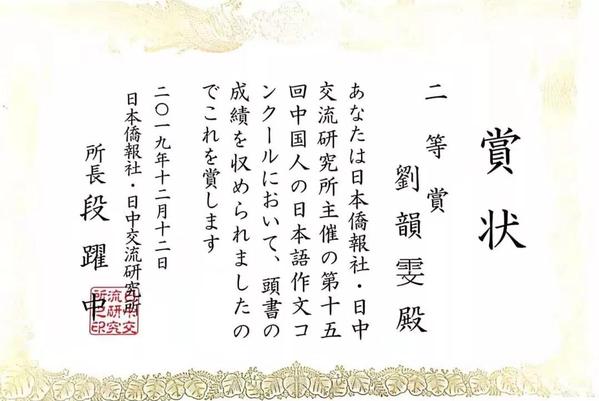 賞状
二等賞
劉韻雯殿
あなたは日本僑報社・日中
交流研究所主催の第十五
回中国人の日本語作文コ
ンクールにおいて、頭書の
成績を収められましたの
でこれを賞します
二〇一九年十二月十二日
日本僑報社・日中交流研究所
所長段躍中
日中交
流研究
所之印